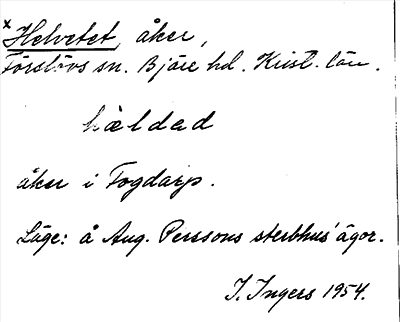 x
Helvetet, åker,
Förslövs sn. Bjäre hd. Krist. län.
hæ̀ldad
åker i Fogdarp.
Läge: å Aug. Perssons sterbhus' ägor.
I. Ingers 1954.